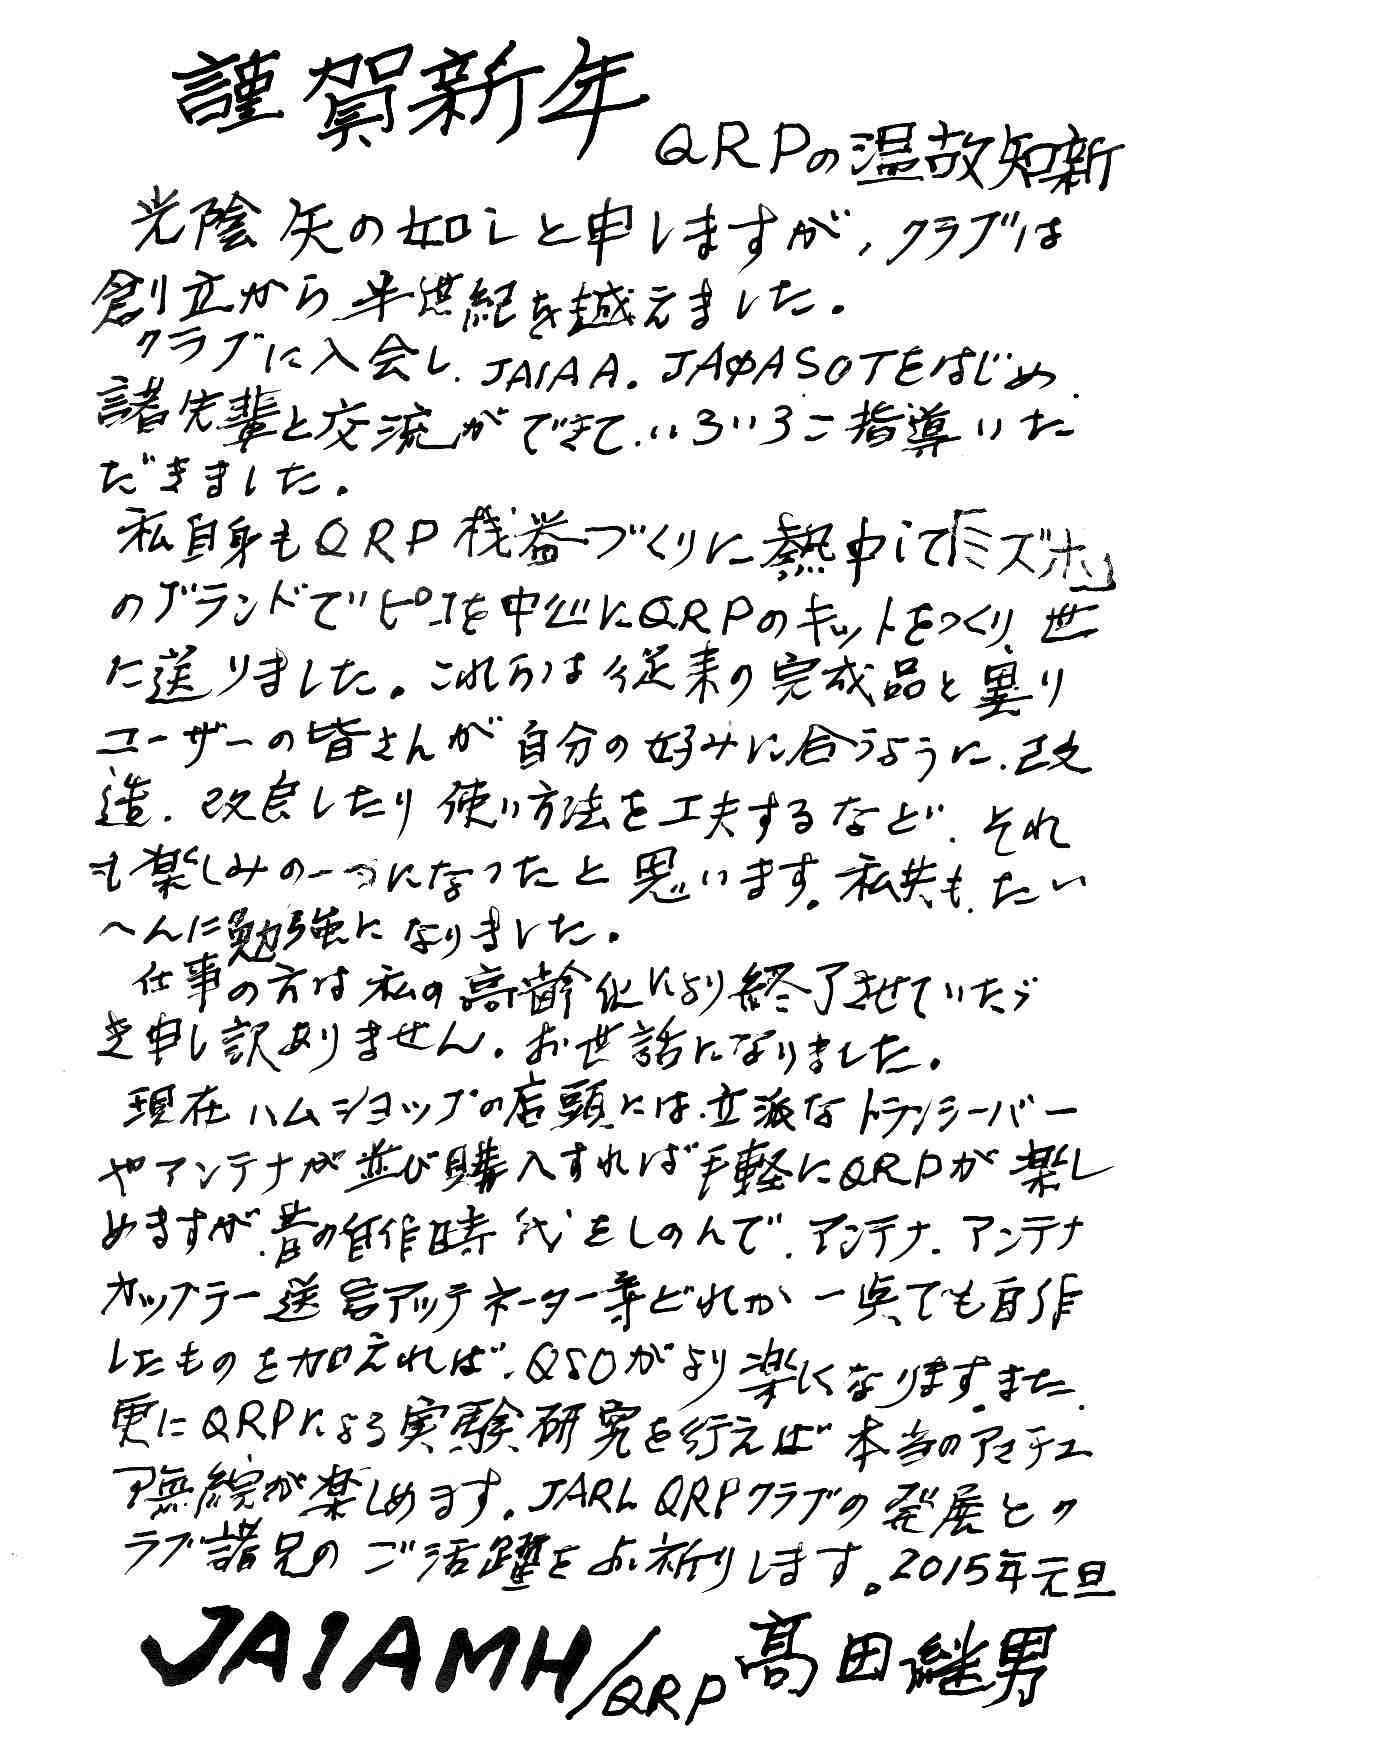 謹賀新年
QRPの温故知新
光陰矢の如しと申しますが、クラブは
創立から半世紀を越えました。
クラブに入会し、JA1AA。JAØASOTをはじめ、
諸先輩と交流ができて、いろいろご指導いた
だきました。
私自身もQRP機器づくりに熱中して「ミズホ」
のブランドでピコを中心にQRPのキットをつくり、世
に送りました。これらは従来の完成品と異り
ユーザーの皆さんが自分の好みに合うように、改
造、改良したり使い方法を工夫するなど、それ
も楽しみの一つになったと思います。私共も、たい
へんに勉強になりました。
仕事の方は私の高齢化により終了させていただ
き申し訳ありません。お世話になりました。
現在ハムショップの店頭には、立派なトランシーバー
やアンテナが並び購入すれば手軽にQRPが楽し
めますが、昔の自作時代をしのんで、アンテナ、アンテナ
カップラー送信アッテネーター等どれか一点でも自作
したものを加えれば、QSOがより楽しくなります。また、
更にQRPによる実験研究を行えば本当のアマチュ
ア無線が楽しめます。JARL QRPクラブの発展とク
ラブ諸兄のご活躍をお祈りします。2015年元旦
JA1AMH/QRP 高田継男